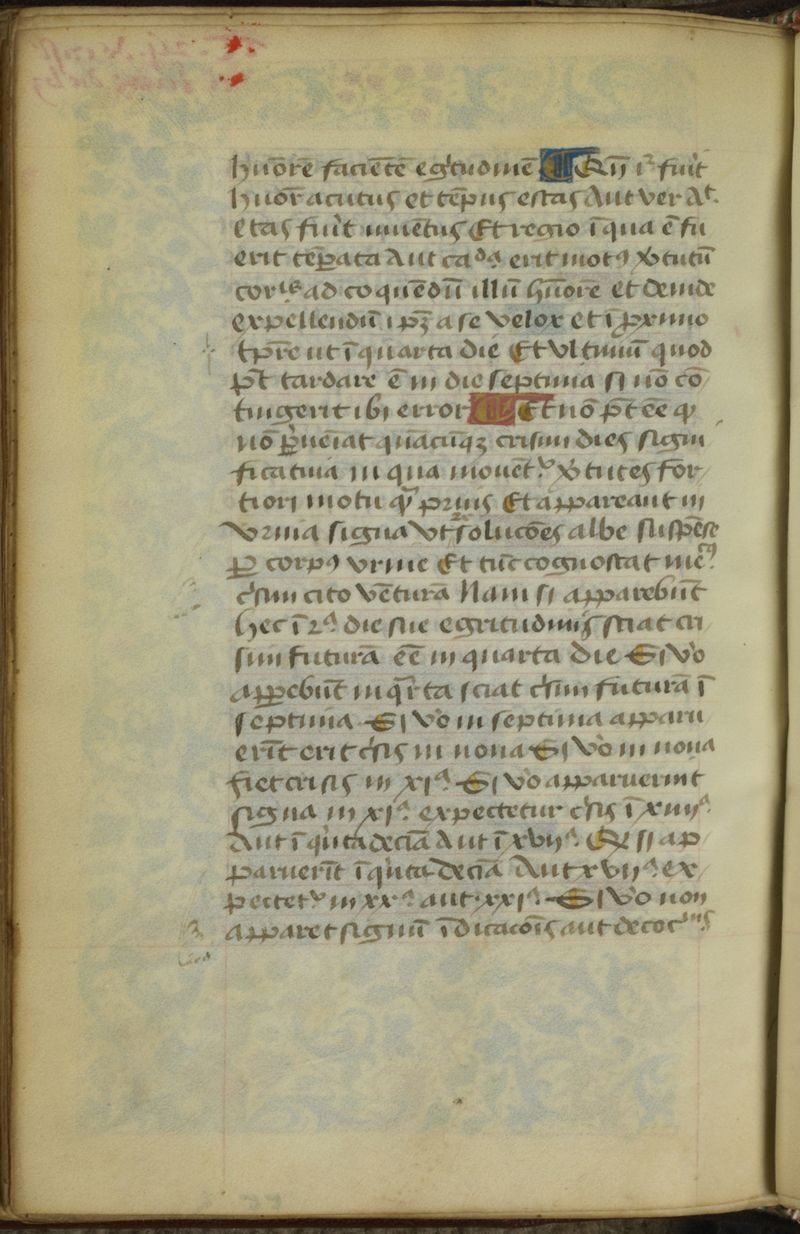 huōrē faciētē egritudinē ¶ Qn̄ iᵍ fuīt
huor̄ acutus et tēpus estas Aut ver Aᵗ.
etas fuīt iuuētus Et regio ī qua ē fu
erit tēꝑata Aut caᵈᵃ erit motꝰ v̄tutū
corᵖⁱˢ ad coquēdū illū hūorē et deinde
expellendū ipꝫ a se velox et ī ꝓximo
tp̄re ut ī quarta die Et Vltimū quod
pō̄t tardare ē in die septima si nō cō
tingerit ibi error ¶ Et nō pō̄t eē ꝙ
nō ꝑueīat quācūqꝫ crisim dies signi
ficatiua in qua mouetᵘʳ v̄tutes for
tiori motu qᵃ̄ prius Et appareant in
vrina signa vt resolucōes albe suspēse
ꝑ corpꝰ vrine Et tūc cognoscat meᶜˢ
cīsim cito vētura Nam si apparebūt
hec ī 2ᵃ die sue egritudinis sciat cri
sim futurā eē in quarta die Si vo
appebūt in qͣrta sciat cīsim futurā ī
septima Si vo in septima apparu
erīt erit cīsis in nona Si vo in nona
fiet crisis in xiᵃ. Si vo apparuerint
signa in xiᵃ. expectetur cīsis ī xiiijᵃ.
Aut ī qͥtadeciā Aut ī xvijᵃ. Et si ap
paruerīt ī qͥtadeciā Aut xvijᵃ. ex
pectetᵘʳ in xxᵃ. aut xxiᵃ. Si vo non
apparet signū īdicacōis aut decocᵒⁿⁱˢ